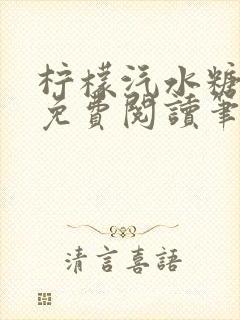 柠檬汽水糖
免費閱讀筆
清言喜語